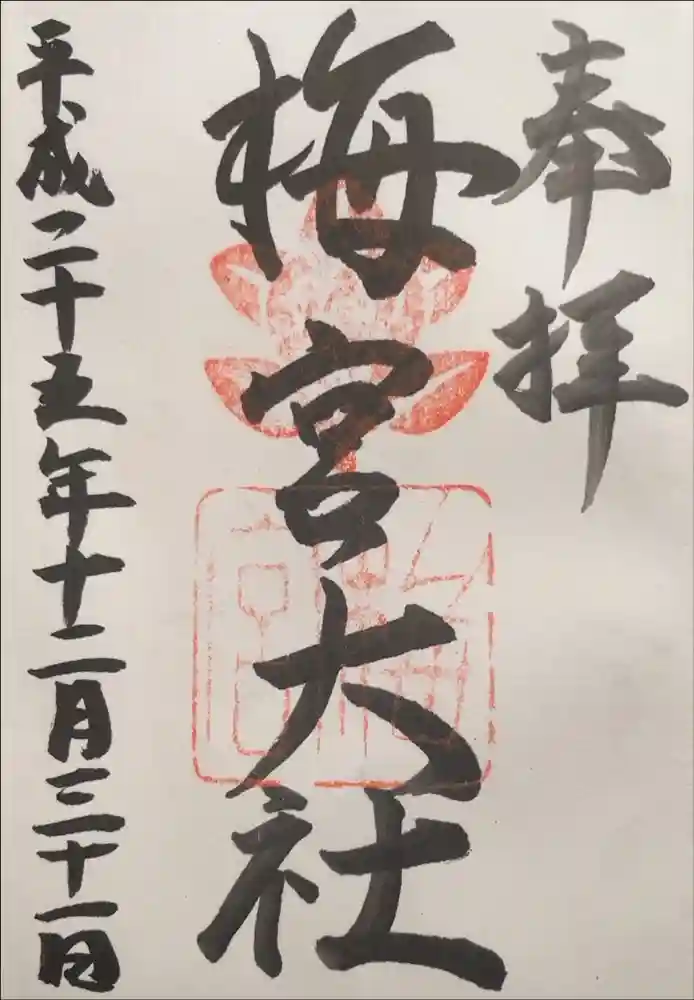 奉拝
梅宮大社
平成二十五年十二月三十一日